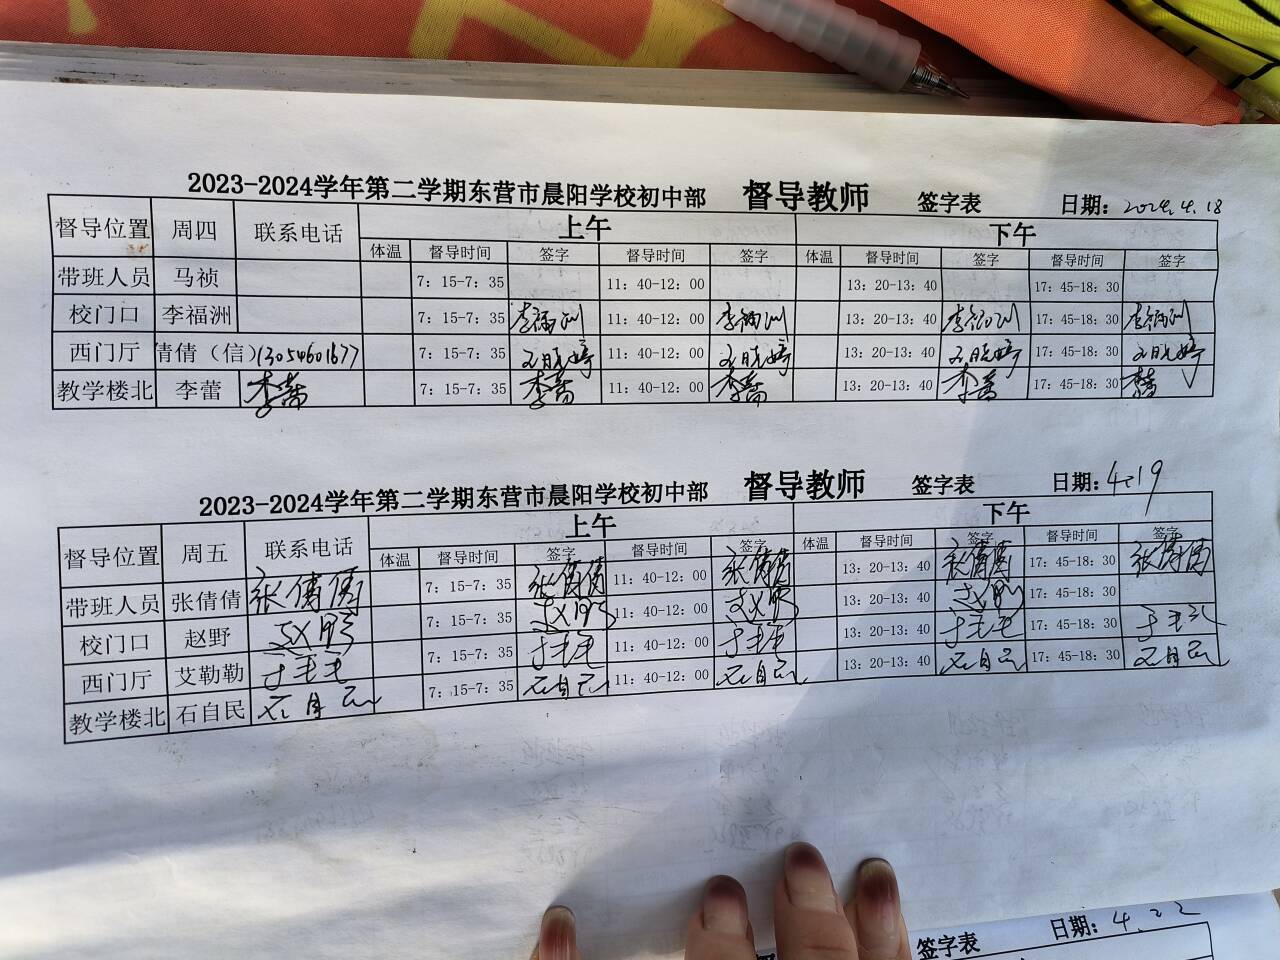 2023-2024学年第二学期东营市晨阳学校初中部 督导教师 签字表 日期: 2024.4.18
督导位置 周四 联系电话 上午 下午
体温 督导时间 签字 督导时间 签字 体温 督导时间 签字 督导时间 签字
带班人员 马祯 7: 15-7: 35 11: 40-12: 00 13: 20-13: 40 17: 45-18: 30
校门口 李福洲 7: 15-7: 35 李福洲 11: 40-12: 00 李福洲 13: 20-13: 40 李福洲 17: 45-18: 30 李福洲
西门厅 倩倩（信） 13054601677 7: 15-7: 35 11: 40-12: 00 13: 20-13: 40 17: 45-18: 30
教学楼北 李蕾 李蕾 7: 15-7: 35 李蕾 11: 40-12: 00 李蕾 13: 20-13: 40 李蕾 17: 45-18: 30 李蕾
2023-2024学年第二学期东营市晨阳学校初中部 督导教师 签字表 日期: 4.19
督导位置 周五 联系电话 上午 下午
体温 督导时间 签字 督导时间 签字 体温 督导时间 签字 督导时间 签字
带班人员 张倩倩 张倩倩 7: 15-7: 35 张倩倩 11: 40-12: 00 张倩倩 13: 20-13: 40 张倩倩 17: 45-18: 30 张倩倩
校门口 赵野 赵野 7: 15-7: 35 赵野 11: 40-12: 00 赵野 13: 20-13: 40 赵野 17: 45-18: 30
西门厅 艾勒勒 于毛毛 7: 15-7: 35 于毛毛 11: 40-12: 00 于毛毛 13: 20-13: 40 于毛毛 17: 45-18: 30 于毛毛
教学楼北 石自民 石自民 7: 15-7: 35 石自民 11: 40-12: 00 石自民 13: 20-13: 40 石自民 17: 45-18: 30 石自民
签字表 日期: 4.22